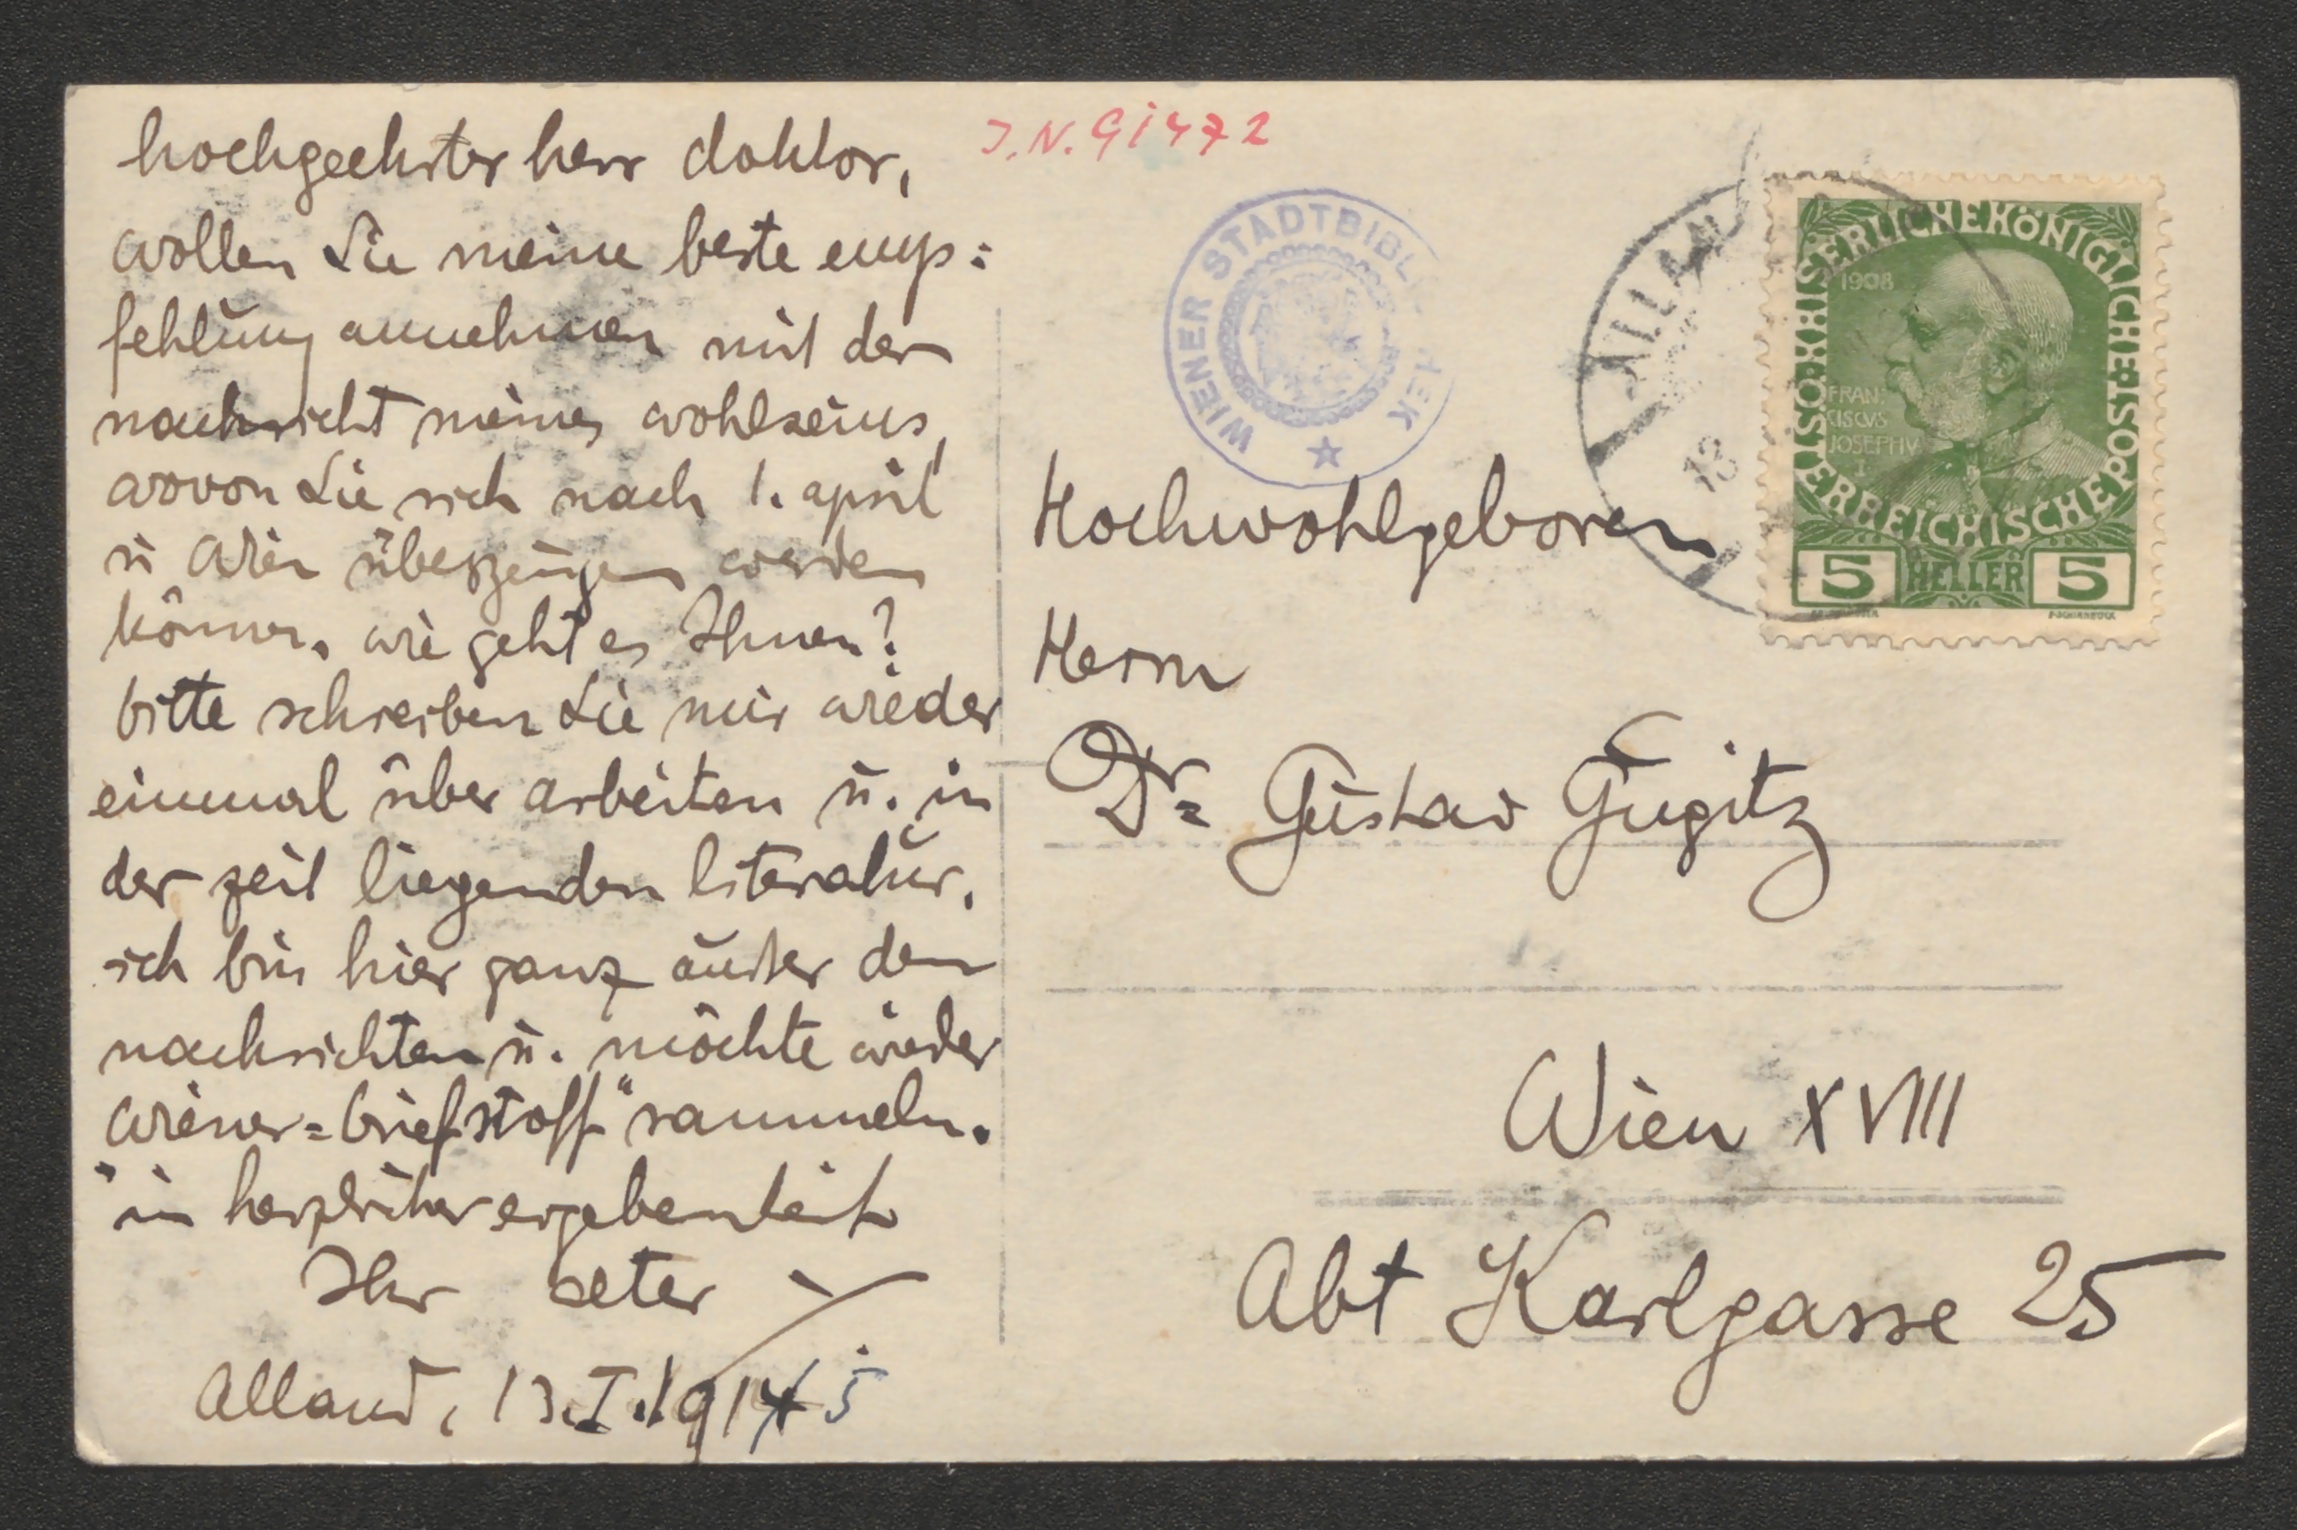 hochgeehrter herr doktor,
wollen Sie meine beste emp=
fehlung annehmen mit der
nachricht meines wohlseins,
wovon Sie sich nach 1. april
in Wien überzeugen werden
können. wie geht es Ihnen?
bitte schreiben Sie mir wieder
einmal über arbeiten u. in
der zeit liegenden literatur.
ich bin hier ganz außer den
nachrichten u. möchte wieder
„wiener=briefstoff“ sammeln.
in herzlicher ergebenheit
Ihr
Alland, 13.I.1914 5
J.N. 91472
WIENER STADTBIBL HEK
ALLAN
13
KAISERLICHE KÖNIGLICHE ÖSTERREICHISCHE POST
1908
FRAN
CISCVS
JOSEPHV
I
5 HELLER 5
Hochwohlgeboren
Herrn
Dr. Gustav Gugitz
Wien XVIII
Abt Karlgasse 25